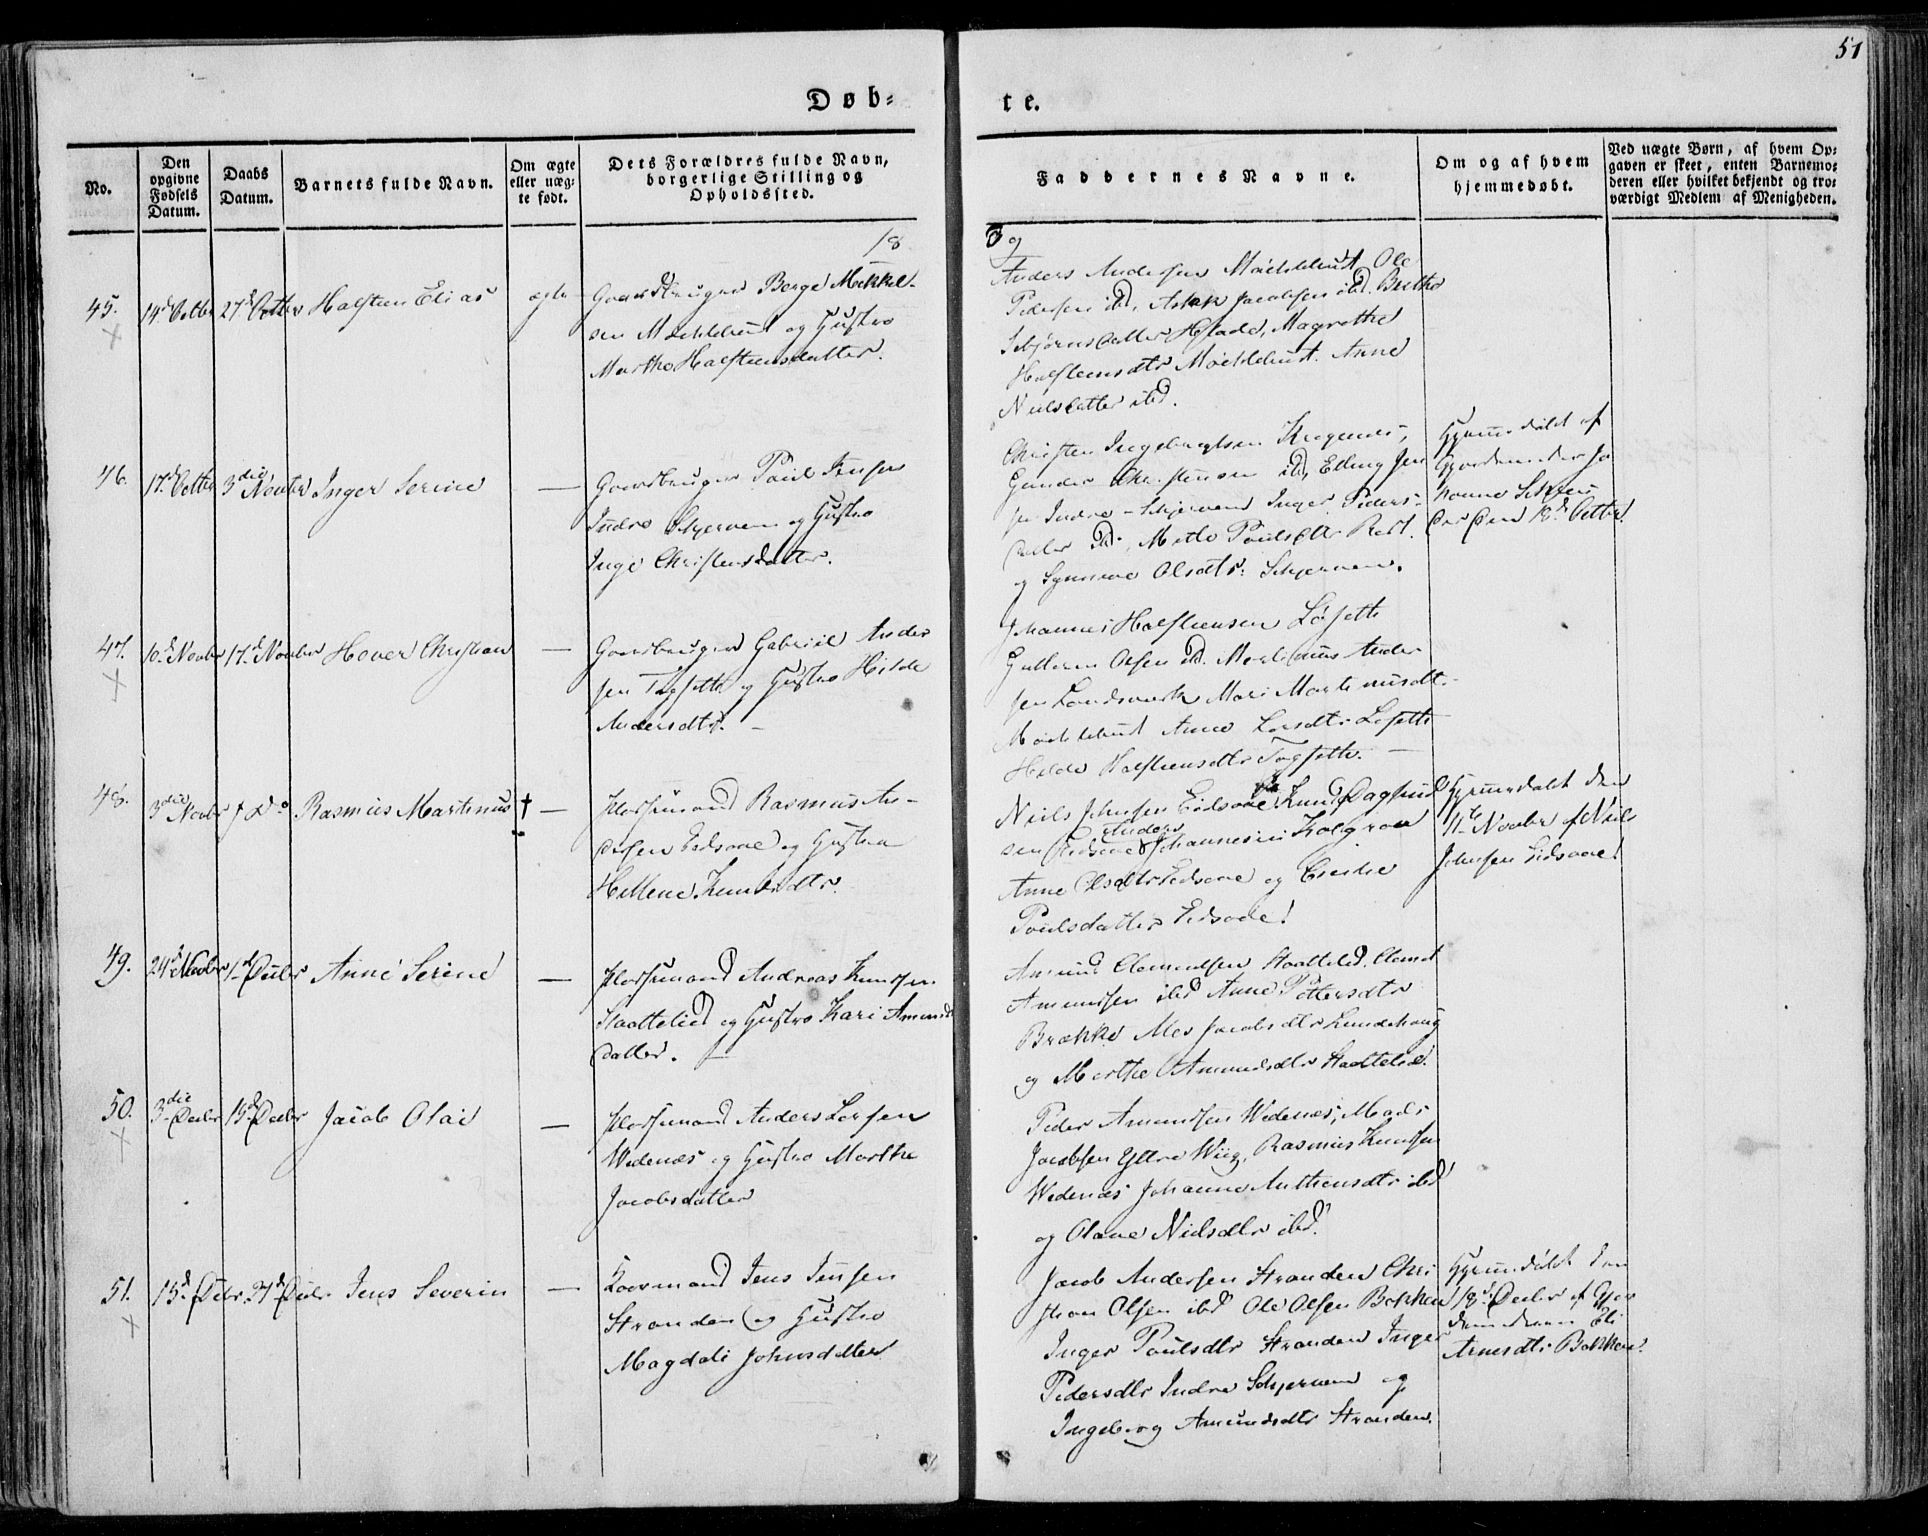 51
Døb=
te.
No.
Den opgivne Fødsels Datum.
Daabs Datum.
Barnets fulde Navn.
Om ægte eller uægte født.
Dets Forældres fulde Navn, borgerlige Stilling og Opholdssted.
Faddernes Navne.
Om og af hvem hjemmedøbt.
Ved uægte Børn, af hvem Opgaven er skeet, enten Barnemoderen eller hvilket bekjendt og troværdigt Medlem af Menigheden.
18
39
45. 14d Octbr 27d Octbr Halsten Elias ægte
Gaardbruger Berge Mikkel-
sen Møeklebust og Hustro
Marthe Halsteensdatter.
Anders Andersen Møeklebust, Ole
Pedersen ibd, Askk Jacobsen ibd. Brithe
Halsteensdtr Møeklebust. Anne
Nielsdatter ibd.
46. 17d Octbr 3die Novbr Inger Serine —
Gaardbruger Poul Jensen
Indre Skjerven og Hustro
Inge Christensdatter.
Christen Ingebrigtsen Kragenes,
Gunder Christensen ibd, Elling Jen
sen Indre-Skjerven Inger Peders-
datter ibd, Mette Poulsdtr
og Synneve Olsdtr: Skjerven.
Hjemmedøbt af
Gjordemoder Jo
hanne
den 18d Octbr.
47. 10d Novbr 17d Novbr Hover Christian —
Gaardbruger Gabriel Ander
sen Tagsetth og Hustro Hilde
Andersdtr. —
Johannes Halsteensen Løsetth
Guttorm Olsen ibd. Martinus Ander
sen Landsverk Mari Martinusdt.
Møeklebust Anne Larsdtr Løsetth
Hilde Halsteensdtr Tagsetth. —
48. 3die Novbr d Do Rasmus Martinus † —
Plassmand Rasmus An-
dersen Eidsaae og Hustro
Hellene Knudsdtr.
Niels Johnsen Eidsaae Knud Dagfind
sen Eidsaae Anders Johannesen
Anne Olsdtr Eidsaae og
Poulsdatter Eidsaae!
Hjemmedøbt den
11te Novbr af Niels
Johnsen Eidsaae!
49. 24d Novbr 1d Decbr Anne Serine —
Plassmand Andreas Knudsen
Haattelied og Hustro Kari Amunds
datter. —
Amund Clemmetsen Haattelied. Clemet
Amundsen ibd Anne Pettersdtr
Brække Jacobsdtr Lundehaug
og Marthe Amundsdtr Haattelied.
50. 3die Decbr 15d Decbr Jacob Olai —
Plassmand Anders Larsen
Wedenæs og Hustro Marthe
Jacobsdatter
Peder Amundsen Wedenæs, Mads
Jacobsen Yttre Wiig, Rasmus Knudsen
Wedenæs Johanne Anthensdtr ibd
og Olave Nielsdtr ibd.
51. 15d Decbr. 31d Decbr Jens Severin —
Huusmand Jens Jensen
Stranden og Hustro
Magdeli Johnsdatter
Jacob Andersen Stranden Chri
stian Olsen ibd Ole Olsen Bakken
Inger Poulsdtr Stranden Inger
Pedersdtr Indre Skjerven og
Ingeborg Amundsdtr Stranden.
Hjemmedøbt den
18d Decbr af Gjor
demoderen Eli
Arnesdtr Bakken.